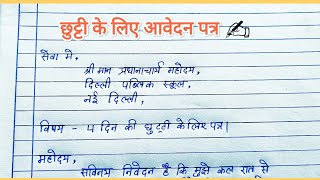 छुट्टी के लिए आवेदन पत्र ✍
सेवा में,
श्री मान प्रधानाचार्य महोदय,
दिल्ली पब्लिक स्कूल,
नई दिल्ली,
विषय - 4 दिन की छुट्टी के लिए पत्र।
महोदय,
सविनय निवेदन है कि मुझे कल रात से